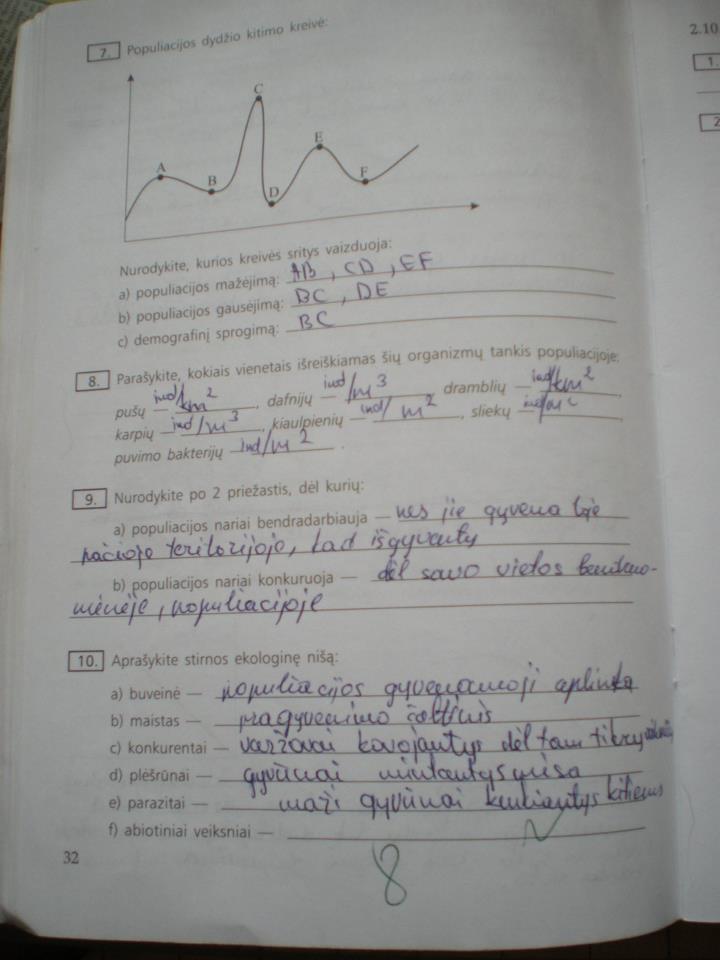 7. Populiacijos dydžio kitimo kreivė:
C
A
B
D
E
F
Nurodykite, kurios kreivės sritys vaizduoja:
a) populiacijos mažėjimą: AB, CD, EF
b) populiacijos gausėjimą: BC, DE
c) demografinį sprogimą: BC
8. Parašykite, kokiais vienetais išreiškiamas šių organizmų tankis populiacijoje:
pušų — ind/km², dafnijų — ind/m³, dramblių — ind/km²,
karpių — ind/m³, kiaulpienių — ind/m², sliekų — ind/m²,
puvimo bakterijų — ind/m².
9. Nurodykite po 2 priežastis, dėl kurių:
a) populiacijos nariai bendradarbiauja — nes jie gyvena toje
pačioje teritorijoje, kad išgyventų
b) populiacijos nariai konkuruoja — dėl savo vietos
populiacijoje
10. Aprašykite stirnos ekologinę nišą:
a) buveinė — populiacijos gyvenamoji aplinka
b) maistas — pragyvenimo šaltinis
c) konkurentai — varžovai kovojantys dėl tam tikrų
d) plėšrūnai — gyvūnai mintantys mėsa
e) parazitai — maži gyvūnai kenkiantys kitiems
f) abiotiniai veiksniai —
32
8
2.10
1.
2